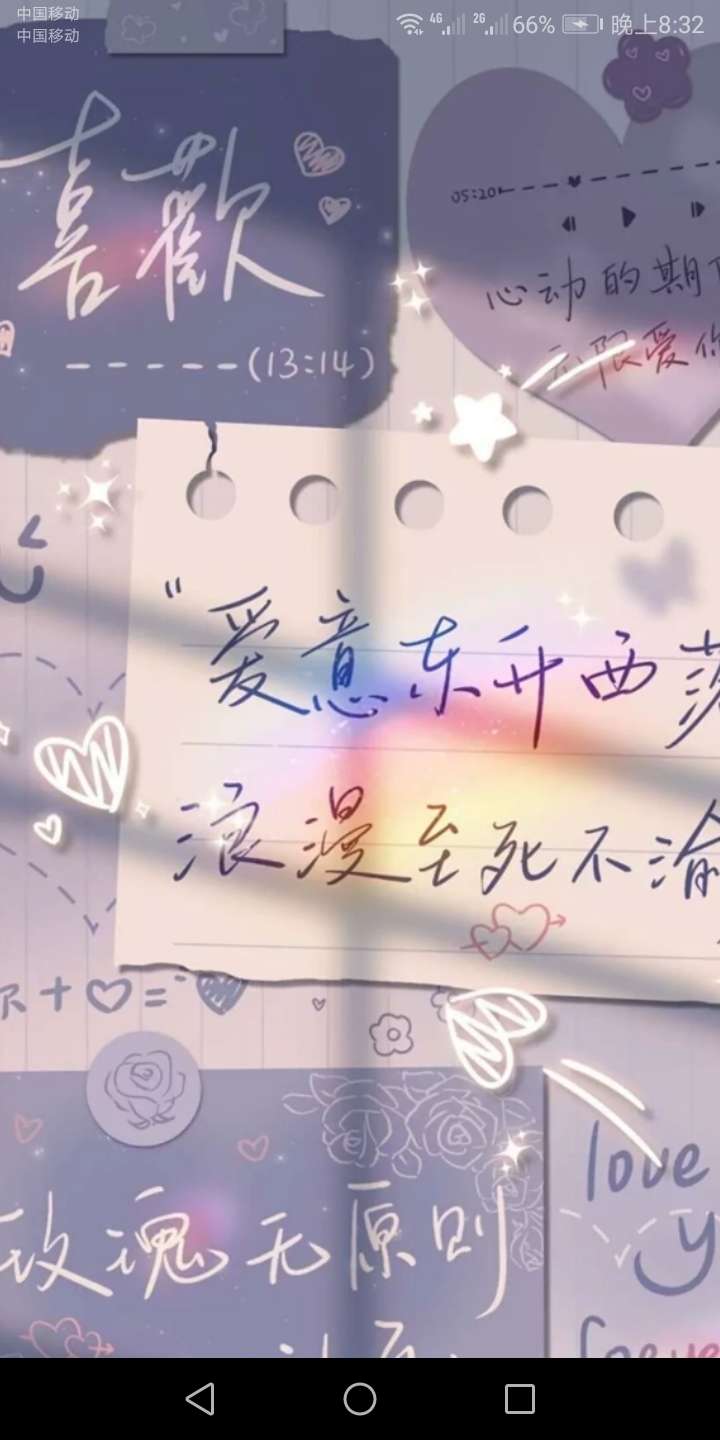 中国移动
中国移动
4G
2G
66%
晚上8:32
喜歡
-----(13:14)
05:20
心动的期
无限爱你
"爱意东升西落
浪漫至死不渝
+ =
玫瑰无原则
love
y